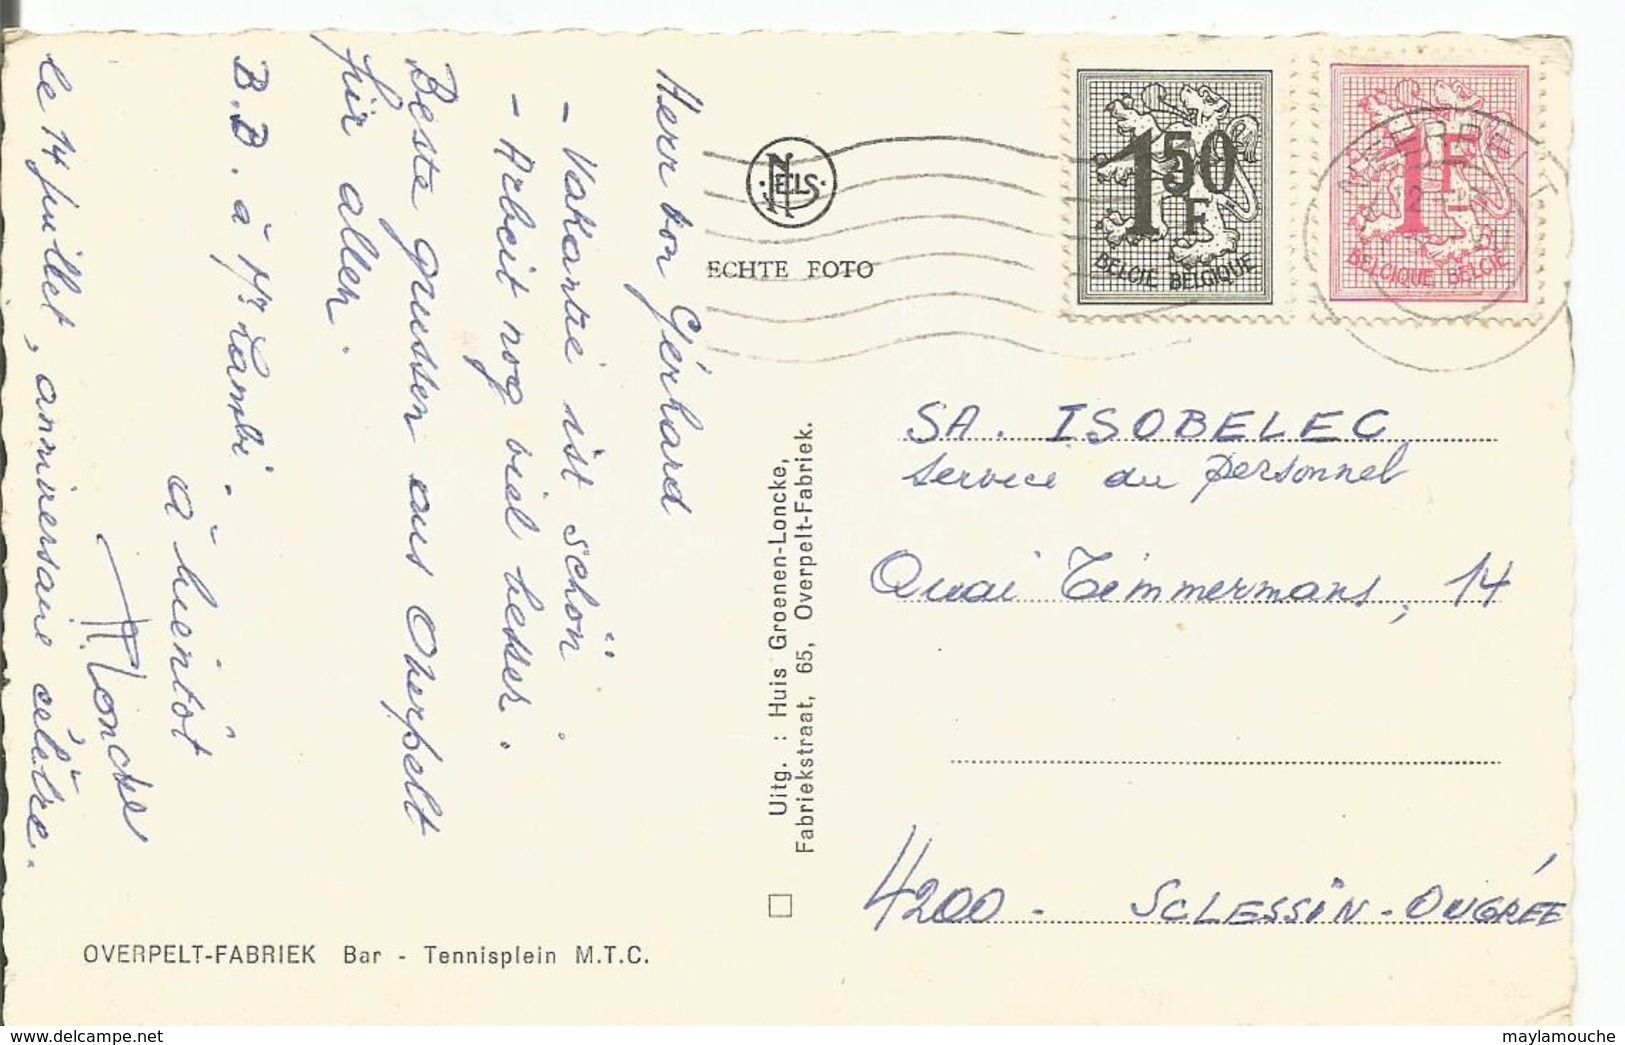 Herr von Gérhard
- Vakantie ist schön.
- Arbeit nog viel besser.
Beste grussen aus Overpelt
für allen.
B.D. à M'r Lambi.
à bientôt
le 14 juillet, anniversaire célèbre.
NELS
ECHTE FOTO
Uitg. : Huis Groenen-Loncke,
Fabriekstraat, 65, Overpelt-Fabriek.
1 50 F
BELGIE BELGIQUE
1F
BELGIQUE BELGIE
NEERPELT
SA. ISOBELEC
Service du personnel
Quai Timmermans, 14
4200 - SCLESSIN-OUGRÉE
OVERPELT-FABRIEK Bar - Tennisplein M.T.C.
maylamouche